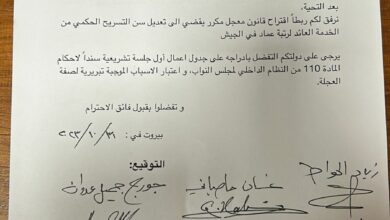 بعد التحية,
نرفق لكم ربطاً اقتراح قانون معجل مكرر يقضي الى تعديل سن التسريح الحكمي من
الخدمة العائد لرتبة عماد في الجيش
يرجى على دولتكم التفضل بادراجه على جدول اعمال أول جلسة تشريعية سنداً لاحكام
المادة 110 من النظام الداخلي لمجلس النواب، و اعتبار الاسباب الموجبة تبريرية لصفة
العجلة.
و تفضلوا بقبول فائق الاحترام
بيروت في: ٣١/١٠/٢٠٢٣
التوقيع:
زياد الحواط غسان حاصباني جورج جميل عدوان